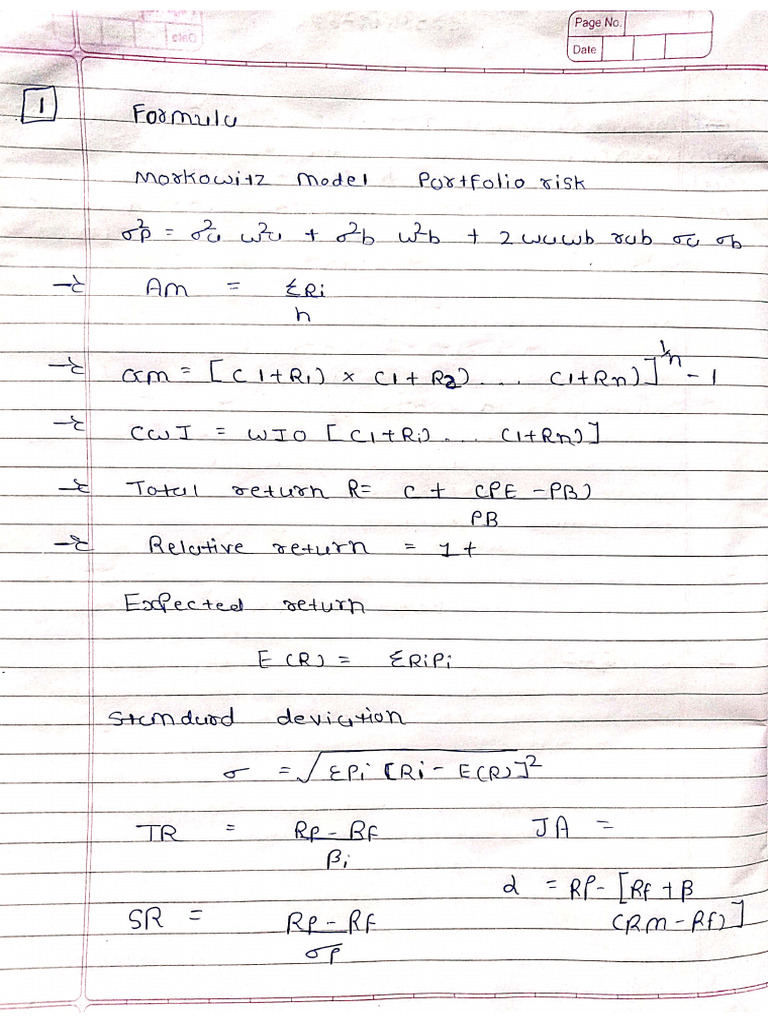 Page No.
Date
1
Formula
Markowitz model Portfolio risk
σ²p = σ²a w²a + σ²b w²b + 2 wawb rab σa σb
→ Am = ΣRi
n
→ Gm = [(1+R1) × (1+R2) ... (1+Rn)]^1/n - 1
→ CWI = WI0 [(1+R1) ... (1+Rn)]
→ Total return R= C + (PE - PB)
PB
→ Relative return = 1+
Expected return
E (R) = ΣRiPi
Standard deviation
σ = √ΣPi [Ri - E(R)]²
TR = Rp - Rf JA =
βi
α = RP - [Rf + β
SR = Rp - Rf (Rm - Rf)]
σp